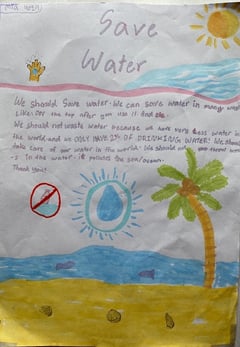 Save
Water
We should save water. We can save water in many ways
Like: Off the tap after you use it. And
We should not waste water because we have very less water in
the world and we ONLY HAVE 2% OF DRINKING WATER! We should
take care of our water in the world. We should not throw
in the water. it pollutes the sea/ocean.
Thank you!